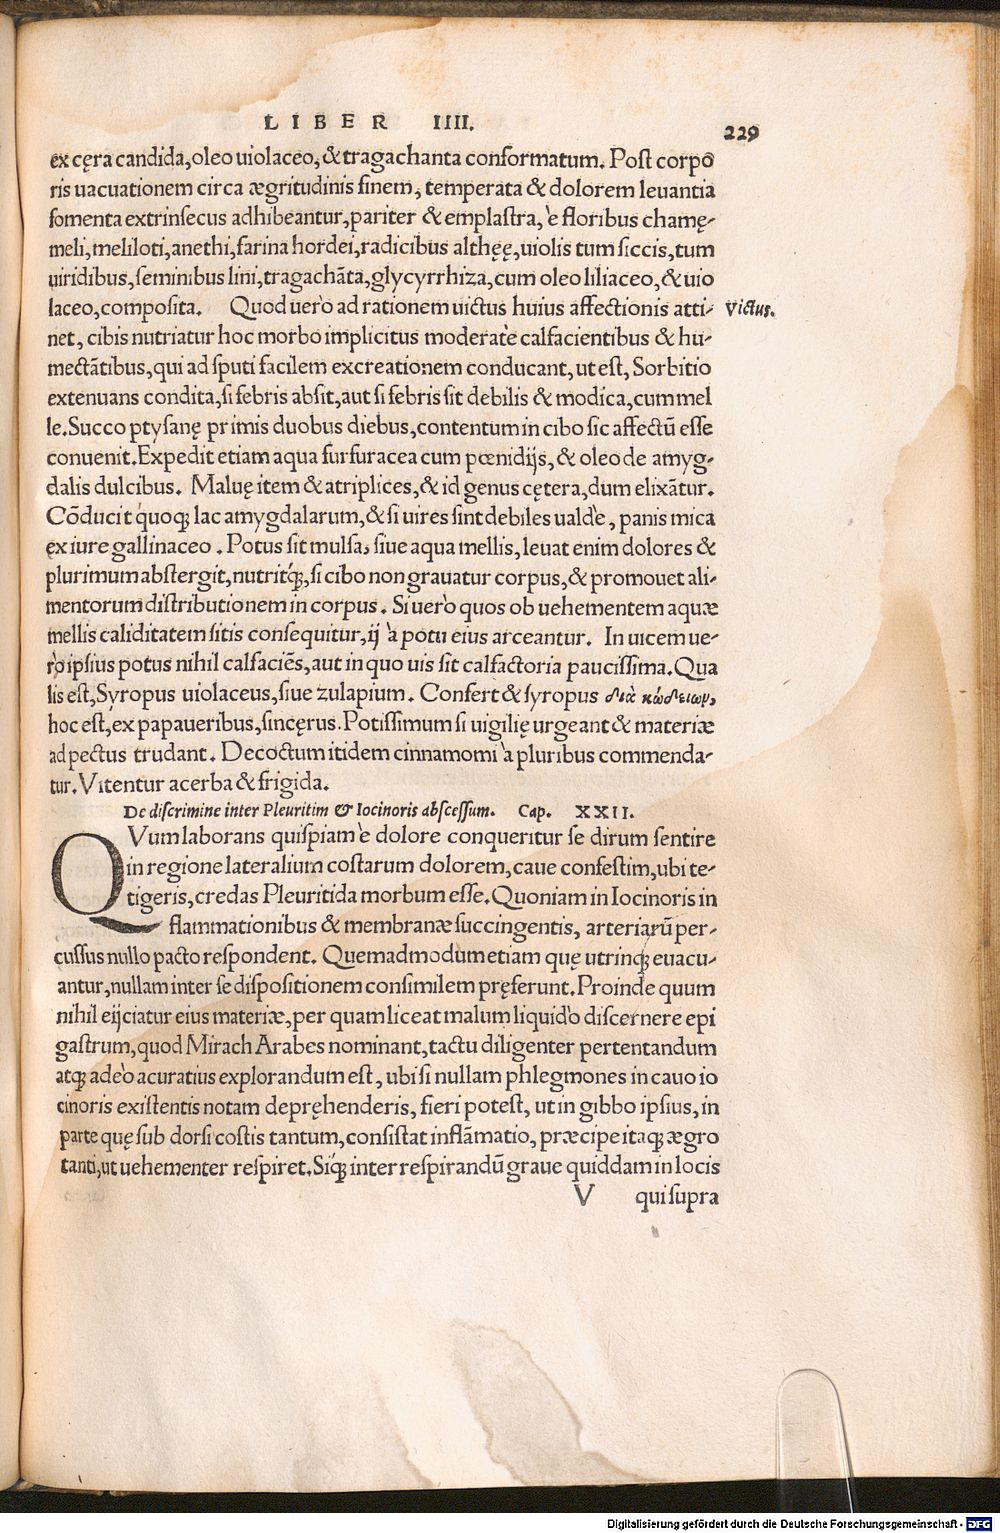 LIBER IIII.
229
ex cęra candida, oleo uiolaceo, & tragachanta conformatum. Post corpo
ris uacuationem circa ægritudinis finem, temperata & dolorem leuantia
fomenta extrinsecus adhibeantur, pariter & emplastra, è floribus chamę-
meli, meliloti, anethi, farina hordei, radicibus althęę, uiolis tum siccis, tum
uiridibus, seminibus lini, tragachāta, glycyrrhiza, cum oleo liliaceo, & uio
laceo, composita. Quod uerò ad rationem uictus huius affectionis atti-
Victus.
net, cibis nutriatur hoc morbo implicitus moderatè calfacientibus & hu-
mectātibus, qui ad sputi facilem excreationem conducant, ut est, Sorbitio
extenuans condita, si febris absit, aut si febris sit debilis & modica, cum mel
le. Succo ptysanę primis duobus diebus, contentum in cibo sic affectū esse
conuenit. Expedit etiam aqua furfuracea cum pœnidijs, & oleo de amyg-
dalis dulcibus. Maluę item & atriplices, & id genus cętera, dum elixātur.
Cōducit quoq; lac amygdalarum, & si uires sint debiles ualdè, panis mica
ex iure gallinaceo. Potus sit mulsa, siue aqua mellis, leuat enim dolores &
plurimum abstergit, nutritq́;, si cibo non grauatur corpus, & promouet ali-
mentorum distributionem in corpus. Si uerò quos ob uehementem aquæ
mellis caliditatem sitis consequitur, ij à potu eius arceantur. In uicem ue-
rò ipsius potus nihil calfaciēs, aut in quo uis sit calfactoria paucissima. Qua
lis est, Syropus uiolaceus, siue zulapium. Confert & syropus διὰ κώδειων,
hoc est, ex papaueribus, sincęrus. Potissimum si uigilię urgeant & materiæ
ad pectus trudant. Decoctum itidem cinnamomi à pluribus commenda-
tur. Vitentur acerba & frigida.
De discrimine inter Pleuritim & Iocinoris abscessum. Cap. XXII.
QVum laborans quispiam è dolore conqueritur se dirum sentire
in regione lateralium costarum dolorem, caue confestim, ubi te-
tigeris, credas Pleuritida morbum esse. Quoniam in Iocinoris in
flammationibus & membranæ succingentis, arteriarū per-
cussus nullo pacto respondent. Quemadmodum etiam quę utrinq; euacu-
antur, nullam inter se dispositionem consimilem pręferunt. Proinde quum
nihil eijciatur eius materiæ, per quam liceat malum liquidò discernere epi
gastrum, quod Mirach Arabes nominant, tactu diligenter pertentandum
atq; adeò acuratius explorandum est, ubi si nullam phlegmones in cauo io
cinoris existentis notam depręhenderis, fieri potest, ut in gibbo ipsius, in
parte quę sub dorsi costis tantum, consistat inflāmatio, præcipe itaq; ægro
tanti, ut uehementer respiret. Siq́; inter respirandū graue quiddam in locis
V qui supra
Digitalisierung gefördert durch die Deutsche Forschungsgemeinschaft - DFG